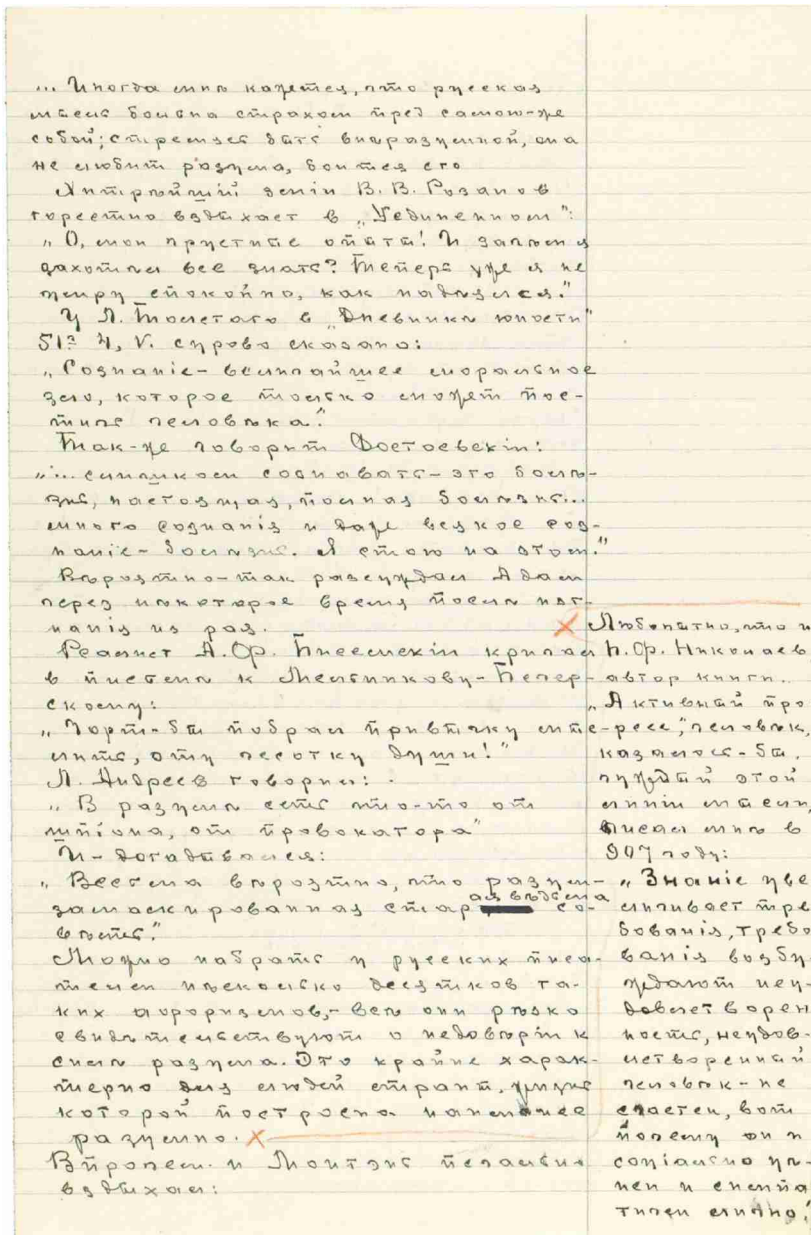 ... Иногда мнѣ кажется, что русская
мысль больна страхом пред самою-же
собой; стремясь быть внѣразумной, она
не любит разума, боится его
Хитрѣйшій змій В. В. Розанов
горестно вздыхает в „Уединенном":
„О, мои грустные опыты! И зачѣм я
захотѣл все знать? Теперь уже я не
умру спокойно, как надѣялся."
У Л. Толстаго в „Дневникѣ юности"
51го 4, V. сурово сказано:
„Сознаніе - величайшее моральное
зло, которое только может пос-
тичь человѣка."
Так-же говорит Достоевскій:
„... слишком сознавать - это болѣ-
знь, настоящая, полная болѣзнь...
много сознанія и даже всякое соз-
наніе - болѣзнь. Я стою на этом."
Вѣроятно - так разсуждал Адам
через нѣкоторое время послѣ изг-
нанія из рая.
Реалист А. Ф. Писемскій кричал
в письмѣ к Мельникову-Печер-
скому:
„Чорт-бы побрал привычку мыс-
лить, эту чесотку души!"
Л. Андреев говорил:
„В разумѣ есть что-то от
шпіона, от провокатора"
И - догадывался:
„Весьма вѣроятно, что разум -
замаскированная старая вѣдьма со-
вѣсть."
Можно набрать у русских писа-
телей нѣсколько десятков та-
ких афоризмов, - всѣ они рѣзко
свидѣтельствуют о недовѣріи к
силѣ разума. Это крайне харак-
терно для людей страны, жизнь
которой построена наименее
разумно. X
Впрочем и Монтэнь печально
вздыхал:
X Любопытно, что и
П. Ф. Николаев
автор книги
„Активный про
гресс", человѣк,
казалось-бы,
чуждый этой
линіи мысли,
писал мнѣ в
907 году:
„Знаніе уве
личивает тре
бованія, требо
ванія возбу
ждают неу-
довлетворен
ность, неудов-
летворенный
человѣк - не
счастен, вот
почему он и
соціально цѣ-
нен и симпа
тичен лично."